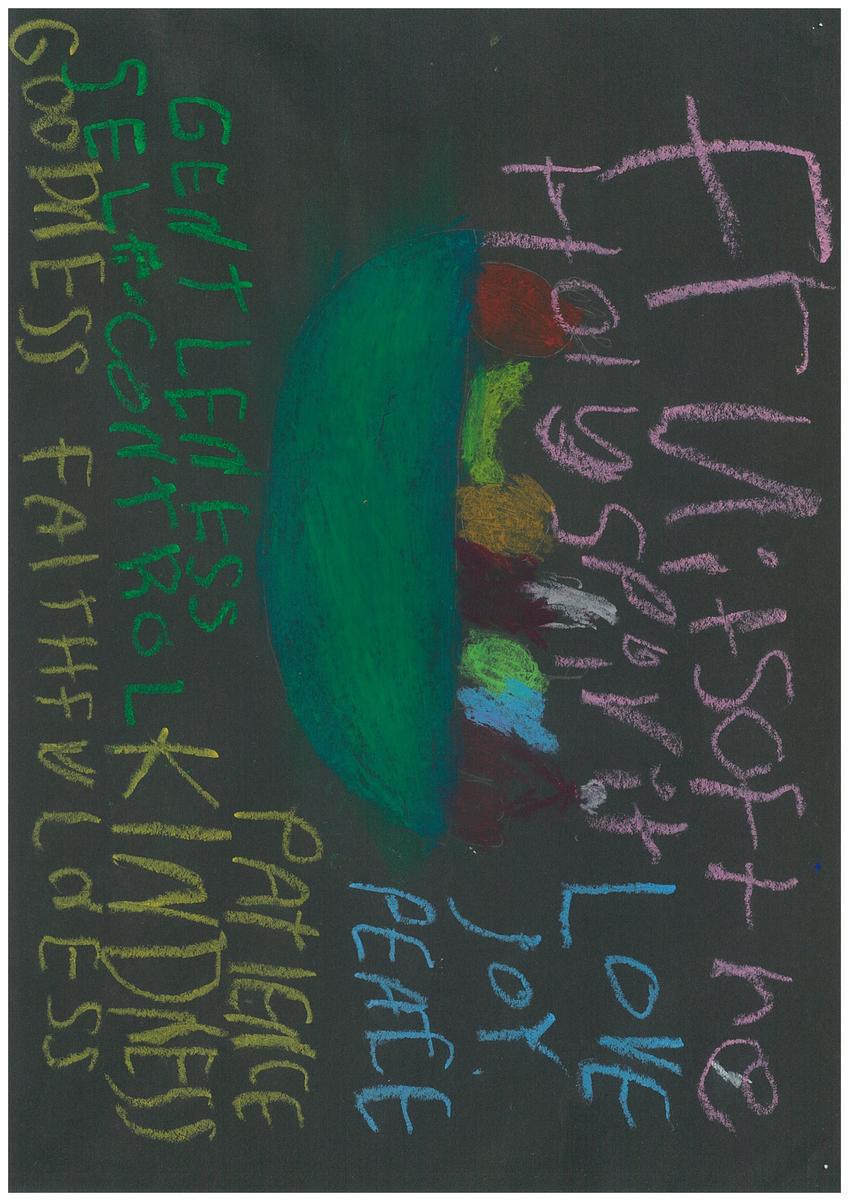 FrUitS OF the
HOly SPirit
LOVE
JOY
PEACE
PATIENCE
KINDNESS
GENTLENESS
SELF-CONTROL
GOODNESS FAITHFULnESS